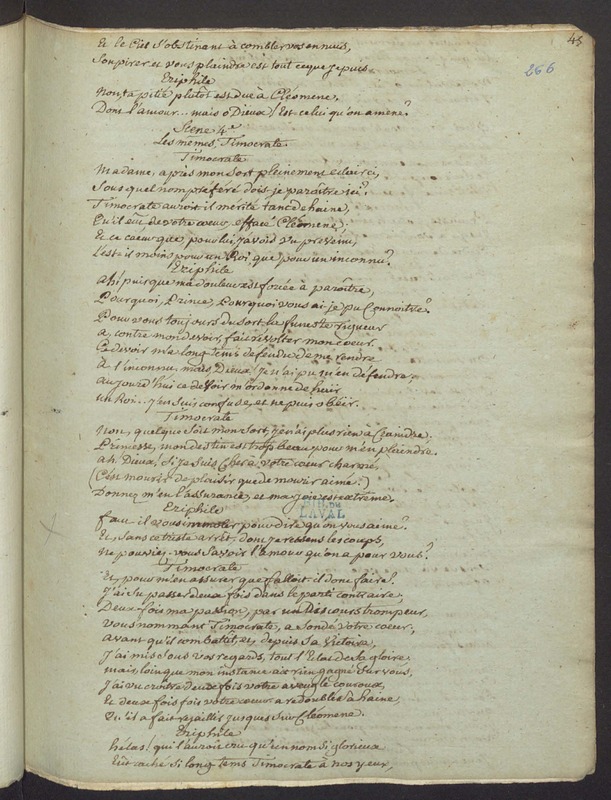 45
266
Et le Ciel s'obstinant à combler vos ennuis,
Soupirer et vous plaindre est tout ce que je puis.
Eriphile
Non, ta pitié plutôt est due à Cléomene,
Dont l'amour... mais o Dieux! Est-ce lui qu'on amene?
Scene 4e
Les mêmes, Timocrate
Timocrate
Madame, après mon sort pleinement eclairci,
Sous quel nom preferé dois-je paraître ici?
Timocrate auroit il merité tant de haine,
Qu'il eût, de votre coeur, effacé Cléomene;
Et ce coeur que pour lui, j'avois vu prevenu,
L'est-il moins pour un Roi que pour un inconnu?
Eriphile
Ah! puisque ma douleur est forcée à paroître,
Pourquoi, Prince, Pourquoi vous ai-je pu Connoitre?
Pour vous toujours du sort la funeste rigueur
A, contre mon devoir, fait révolter mon coeur.
Ce devoir m'a longtems defendu de me rendre
A l'inconnu, mais Dieux! Je n'ai pu m'en défendre;
aujourd'hui ce devoir m'ordonne de haïr
un Roi.. j'en suis confuse, et ne puis obéir.
Timocrate
Non, quelque soit mon sort, je n'ai plus rien à Craindre.
Princesse, mon destin est trop beau pour m'en plaindre.
ah Dieux! si je suis Cher à votre coeur charmé,
(C'est mourir de plaisir que de mourir aimé!)
Donnez m'en l'assurance, et ma joie est extrême.
BIB. DE
LAVAL
Eriphile
faut il vous immoler pour dire qu'on vous aime?
Et, sans ce triste arrêt, dont je ressens les coups,
Ne pouviez-vous savoir l'amour qu'on a pour vous?
Timocrate
Et, pour m'en assurer que falloit-il donc faire?
J'ai su passer deux fois dans le parti contraire,
Deux fois ma passion, par un discours trompeur,
Vous nommant Timocrate, a sondé votre coeur,
avant qu'il combatit, et, depuis sa victoire,
J'ai mis sous vos regards, tout l'Eclat de sa gloire.
mais, loin que mon instance ait rien gagné sur vous,
J'ai vu croître deux fois votre aveugle couroux,
Et deux fois votre coeur a redoublé sa haine,
Qu'il a fait rejaillir jusques sur Cléomene.
Eriphile
hélas! qui l'auroit cru qu'un nom si glorieux
Eût caché si longtems Timocrate à nos yeux,